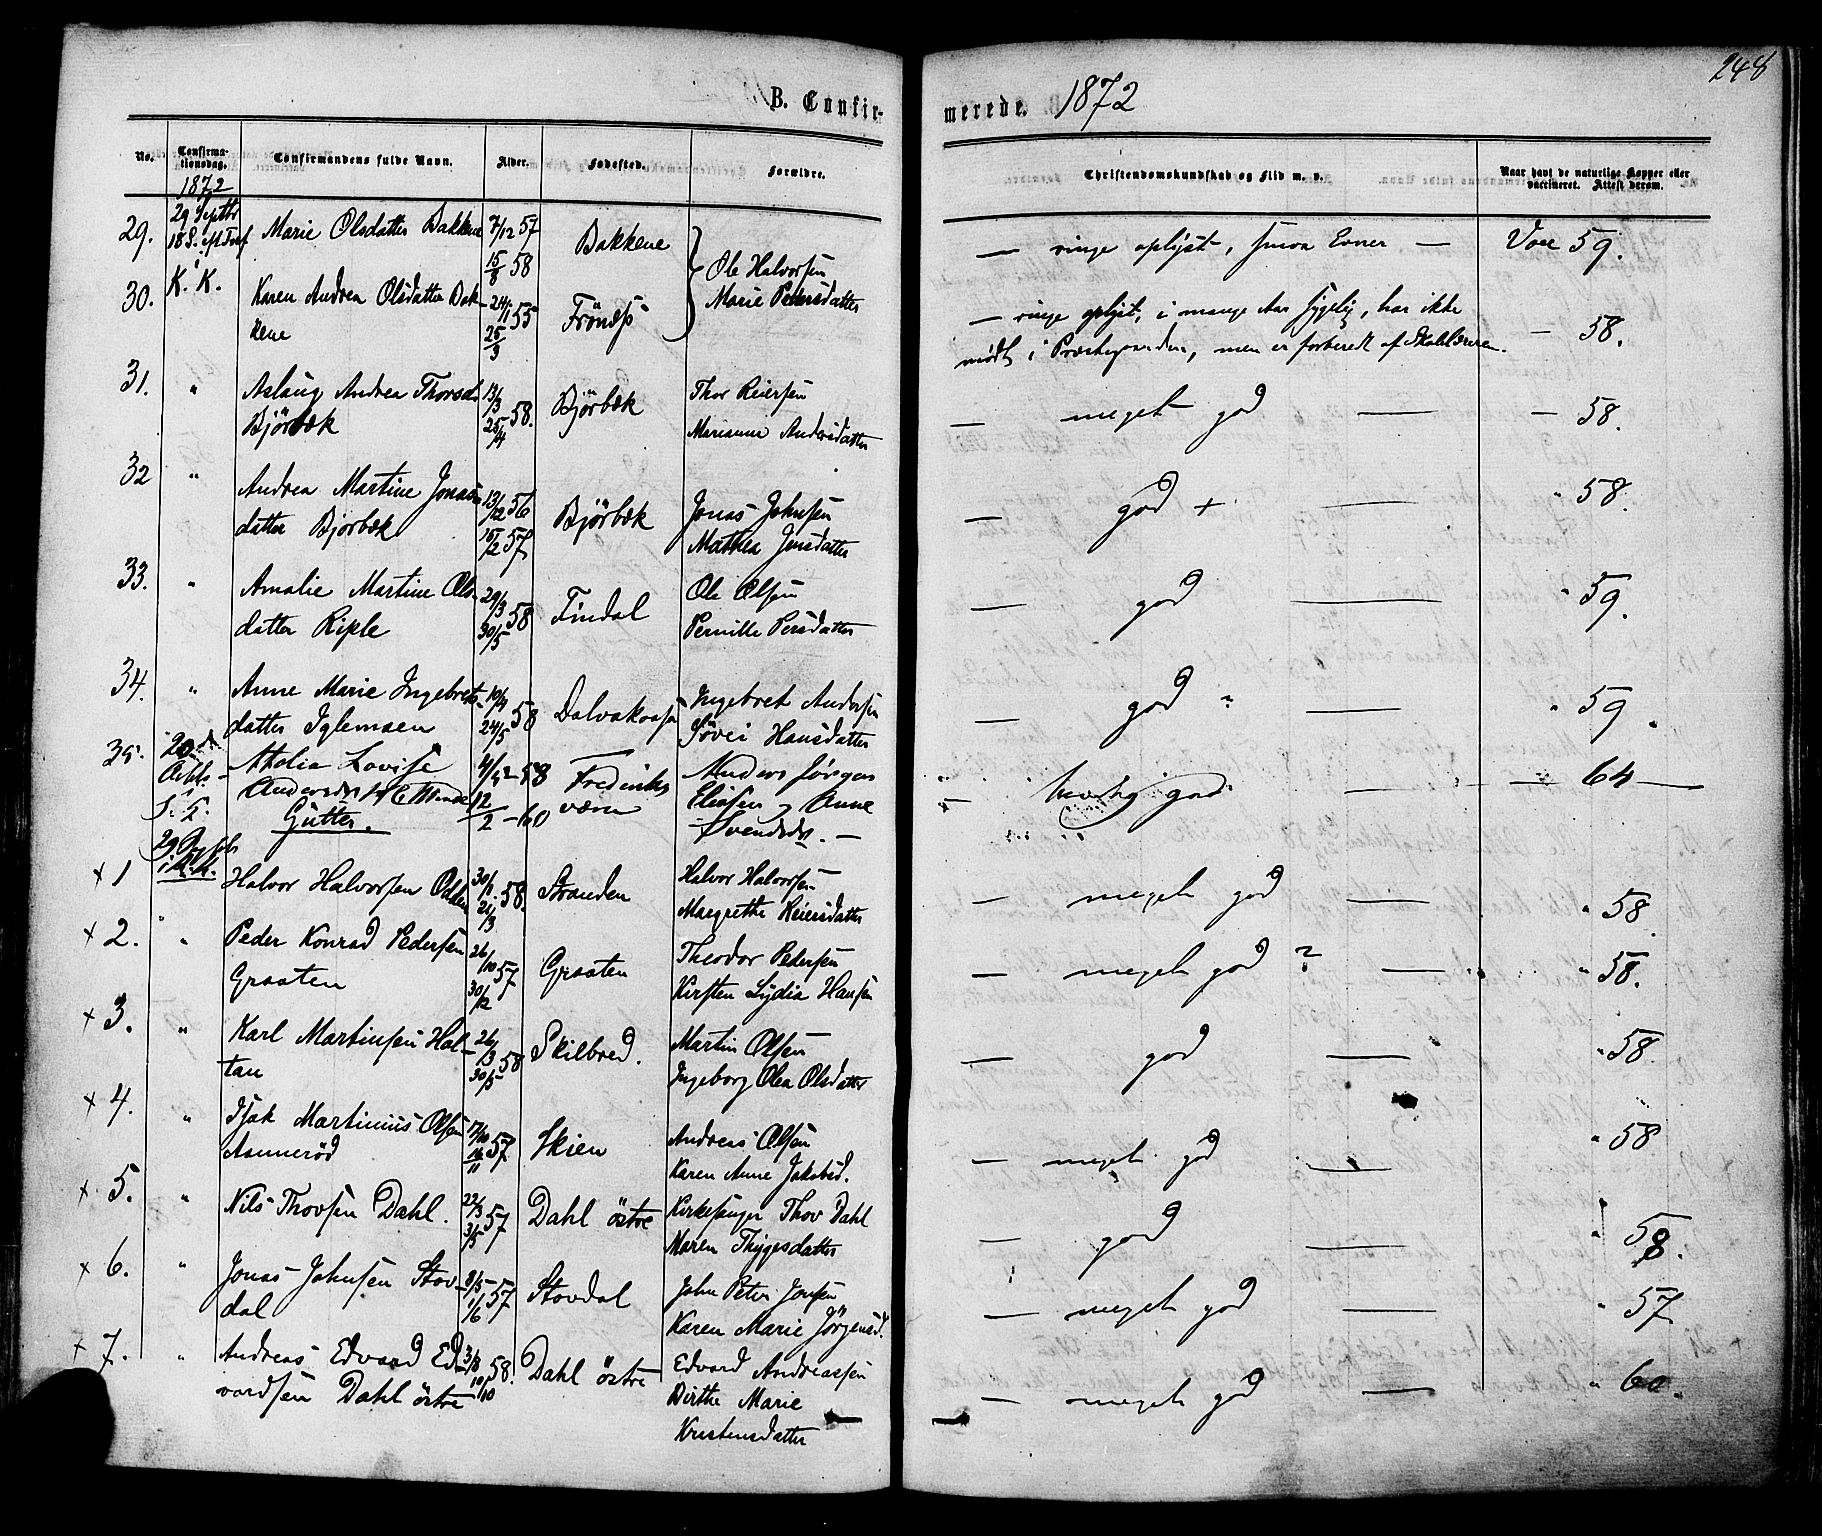 248
B. Confirmerede. 1872
No.
Confirmationsdag.
Confirmandens fulde Navn.
Alder.
Fødested.
Forældre.
Christendomskundskab og Flid m. v.
Naar havt de naturlige Kopper eller vaccineret. Attest derom.
1872
29 Septbr
18 S.
K. K.
29. Marie Olsdatter Bakkene 7/12 57 15/8 58 Bakkene
Ole Halvorsen
Marie Pedersdatter
— ringe oplyst, smaa Evner — Vacc 59.
30. Karen Andrea Olsdatter Bak-
kene 24/11 55 25/3 Frönæs
— ringe oplyst, i mange Aar sygelig, har ikke
mødt i Præstegaarden, men er forberedt af Skolelæreren. — 58.
31. " Aslaug Andrea Thorsd.
Björbæk 13/3 58. 25/4 Björbæk
Thor Reiersen
Marianne Andersdatter
— meget god — — 58.
32 " Andrea Martine Jonas-
datter Björbæk 13/12 56 15/2 57. Björbæk
Jonas Johnsen
Mathea Jensdatter
— god + — " 58.
33. " Amalie Martine Ols-
datter Riple 29/3 58 30/5 Findal
Ole Olsen
Pernille Persdatter
— god — " 59.
34. " Anne Marie Ingebrets-
datter Iglemaen 10/4 58 24/5 Dalvakaasa
Ingebret Andersen
Søvei Hansdatter
— god — " 59.
35. Atolia Lovise
Gutter. 58 12/2 – 60 Frederiks
værn
Anders Jørgen
Eliasen og Anne
Svendsdr. —
— god — — 64 —
+ 1 Halvor Halvorsen Odden 30/1 58. 21/3 Stranden
Halvor Halvorsen
Margrethe Reiersdatter
— meget god — " 58.
+ 2. " Peder Konrad Pedersen
Graaten 26/10 57 30/12 Graaten
Theodor Pedersen
Kirsten Lydia Hansen
— meget god ? — " 58.
+ 3. " Karl Martinsen Hal-
tan 26/3 58 30/5 Skilbred.
Martin Olsen
Ingeborg Olea Olsdatter
— god — " 58.
+ 4. " Isak Martinius Olsen
Asmerød 17/10 57 16/11 Skien
Andreas Olsen
Karen Anne Jakobsd.
— meget god — " 58
+ 5. " Nils Thovsen Dahl. 22/3 57 3/5 Dahl östre
Kirkesanger Thov Dahl
Maren Thygesdatter
— god — " 58.
+ 6. " Jonas Johnsen Stov-
dal 8/5 57 1/6 Stovdal
John Peter Jonsen
Karen Marie Jörgensd.
— meget god — " 57
+ 7. " Andreas Edvard Ed-
vardsen Dahl östre 3/8 58. 10/10 Dahl östre
Edvard Andreassen
Birthe Marie
Kristensdatter
— meget god — " 60.